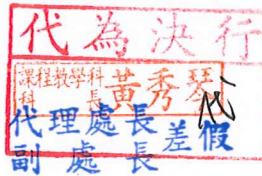 代為決行
課程教學科科長 黃秀琴
代理處長
副處長 差假